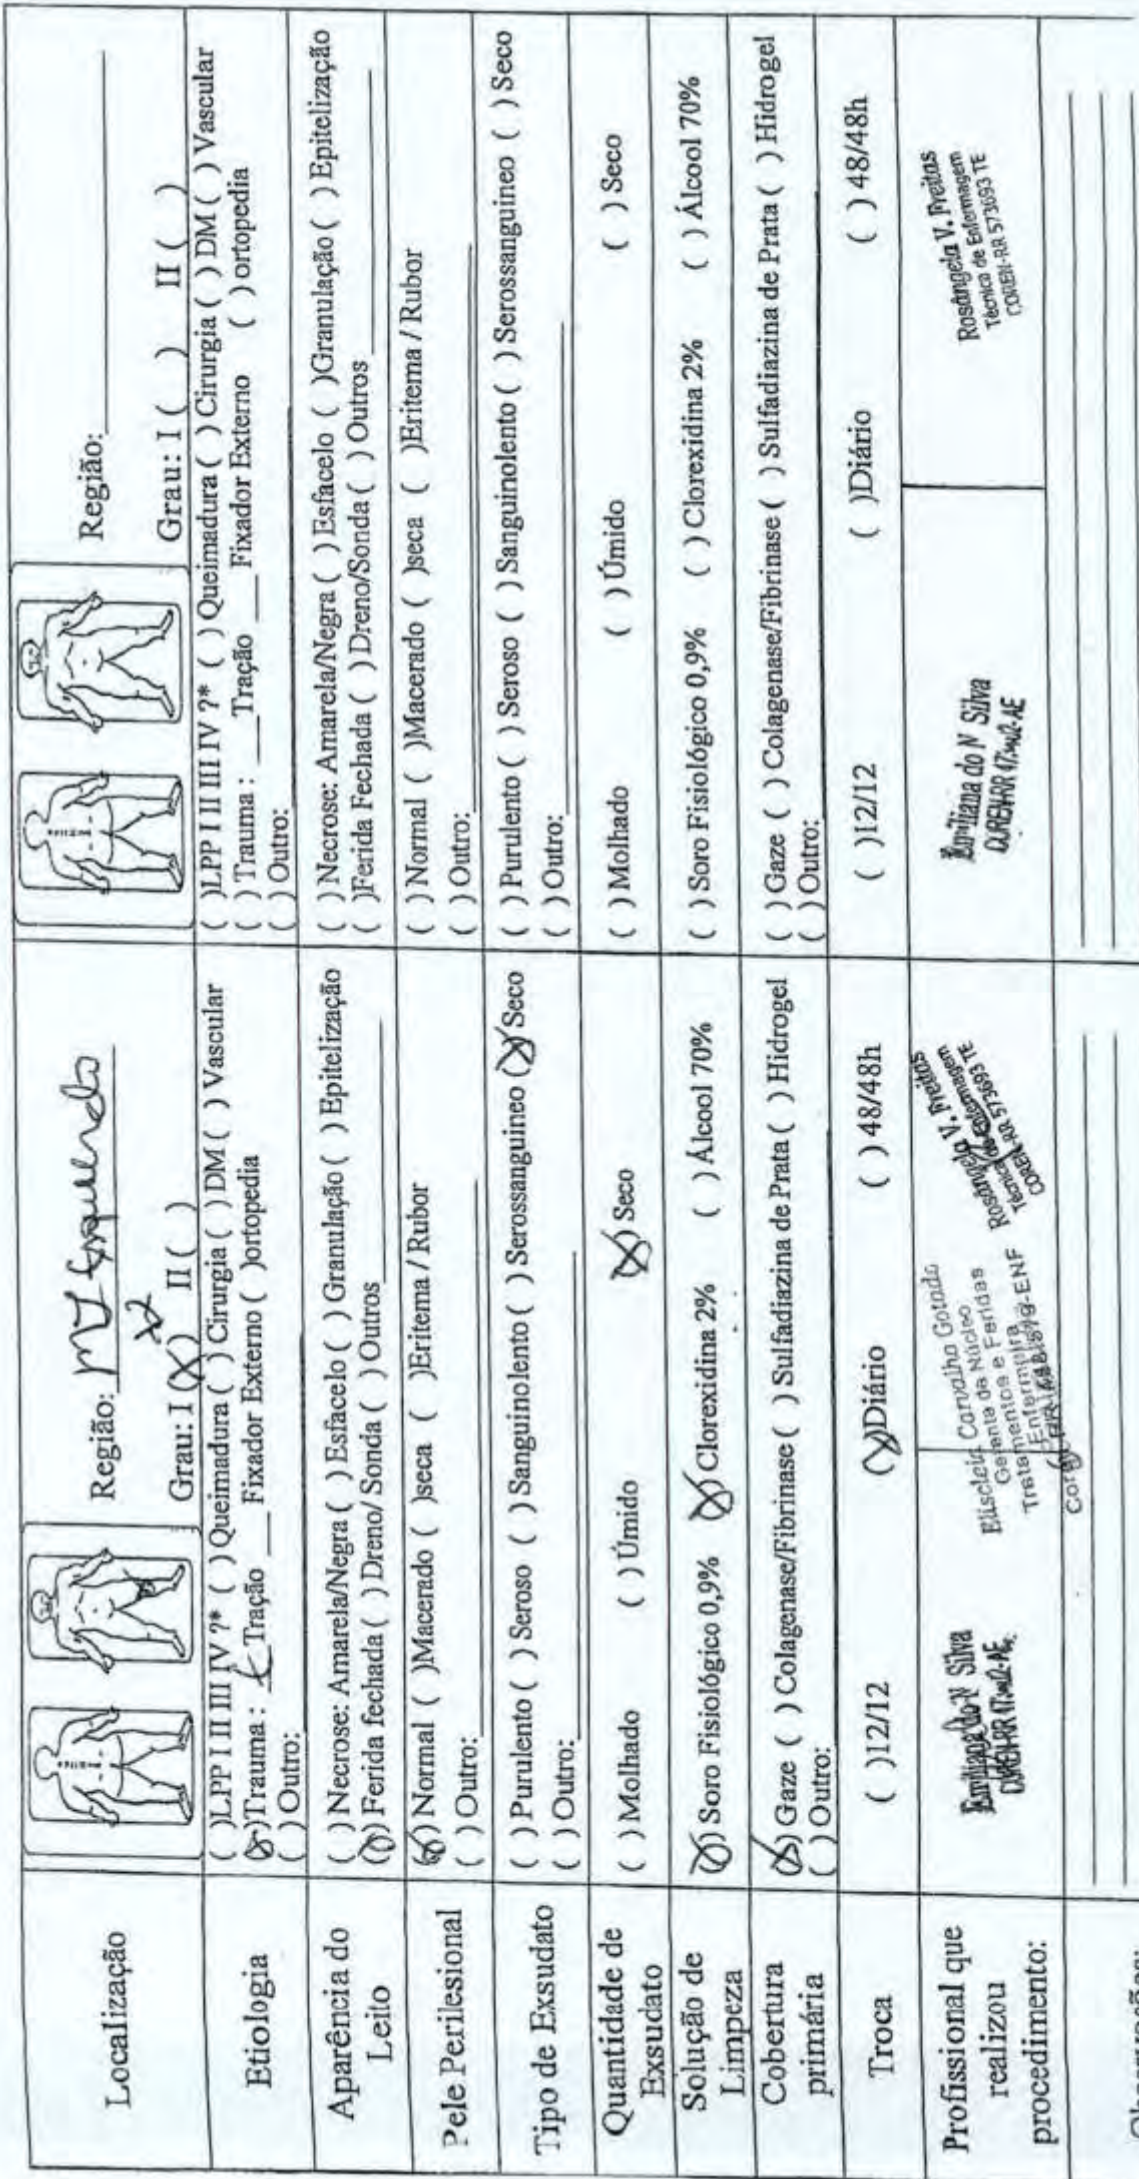 Localização
Região: MI Esquerdo
Grau: I (X) II ( )
Região:
Grau: I ( ) II ( )
Etiologia
( )LPP I II III IV ?* ( ) Queimadura ( ) Cirurgia ( ) DM ( ) Vascular
(X)Trauma : X Tração ___ Fixador Externo ( )ortopedia
( ) Outro:
( )LPP I II III IV ?* ( ) Queimadura ( ) Cirurgia ( ) DM ( ) Vascular
( ) Trauma : ___Tração ___Fixador Externo ( ) ortopedia
( ) Outro:
Aparência do
Leito
( ) Necrose: Amarela/Negra ( ) Esfacelo ( ) Granulação ( ) Epitelização
(X) Ferida fechada ( ) Dreno/ Sonda ( ) Outros
( ) Necrose: Amarela/Negra ( ) Esfacelo ( )Granulação ( ) Epitelização
( )Ferida Fechada ( ) Dreno/Sonda ( ) Outros
Pele Perilesional
(X) Normal ( )Macerado ( )seca ( )Eritema / Rubor
( ) Outro:
( ) Normal ( )Macerado ( )seca ( )Eritema / Rubor
( ) Outro:
Tipo de Exsudato
( ) Purulento ( ) Seroso ( ) Sanguinolento ( ) Serossanguineo (X) Seco
( ) Outro:
( ) Purulento ( ) Seroso ( ) Sanguinolento ( ) Serossanguineo ( ) Seco
( ) Outro:
Quantidade de
Exsudato
( ) Molhado ( ) Úmido (X) Seco
( ) Molhado ( ) Úmido ( ) Seco
Solução de
Limpeza
(X) Soro Fisiológico 0,9% (X) Clorexidina 2% ( ) Álcool 70%
( ) Soro Fisiológico 0,9% ( ) Clorexidina 2% ( ) Álcool 70%
Cobertura
primária
(X) Gaze ( ) Colagenase/Fibrinase ( ) Sulfadiazina de Prata ( ) Hidrogel
( ) Outro:
( ) Gaze ( ) Colagenase/Fibrinase ( ) Sulfadiazina de Prata ( ) Hidrogel
( ) Outro:
Troca
( )12/12 (X)Diário ( ) 48/48h
( )12/12 ( )Diário ( ) 48/48h
Profissional que
realizou
procedimento:
do N Silva
Carvalho
Gerente do Núcleo
e Feridas
Rosângela V. Freitas
Técnica de Enfermagem
COREN-RR 573693 TE
do N Silva
Rosângela V. Freitas
Técnica de Enfermagem
COREN-RR 573693 TE